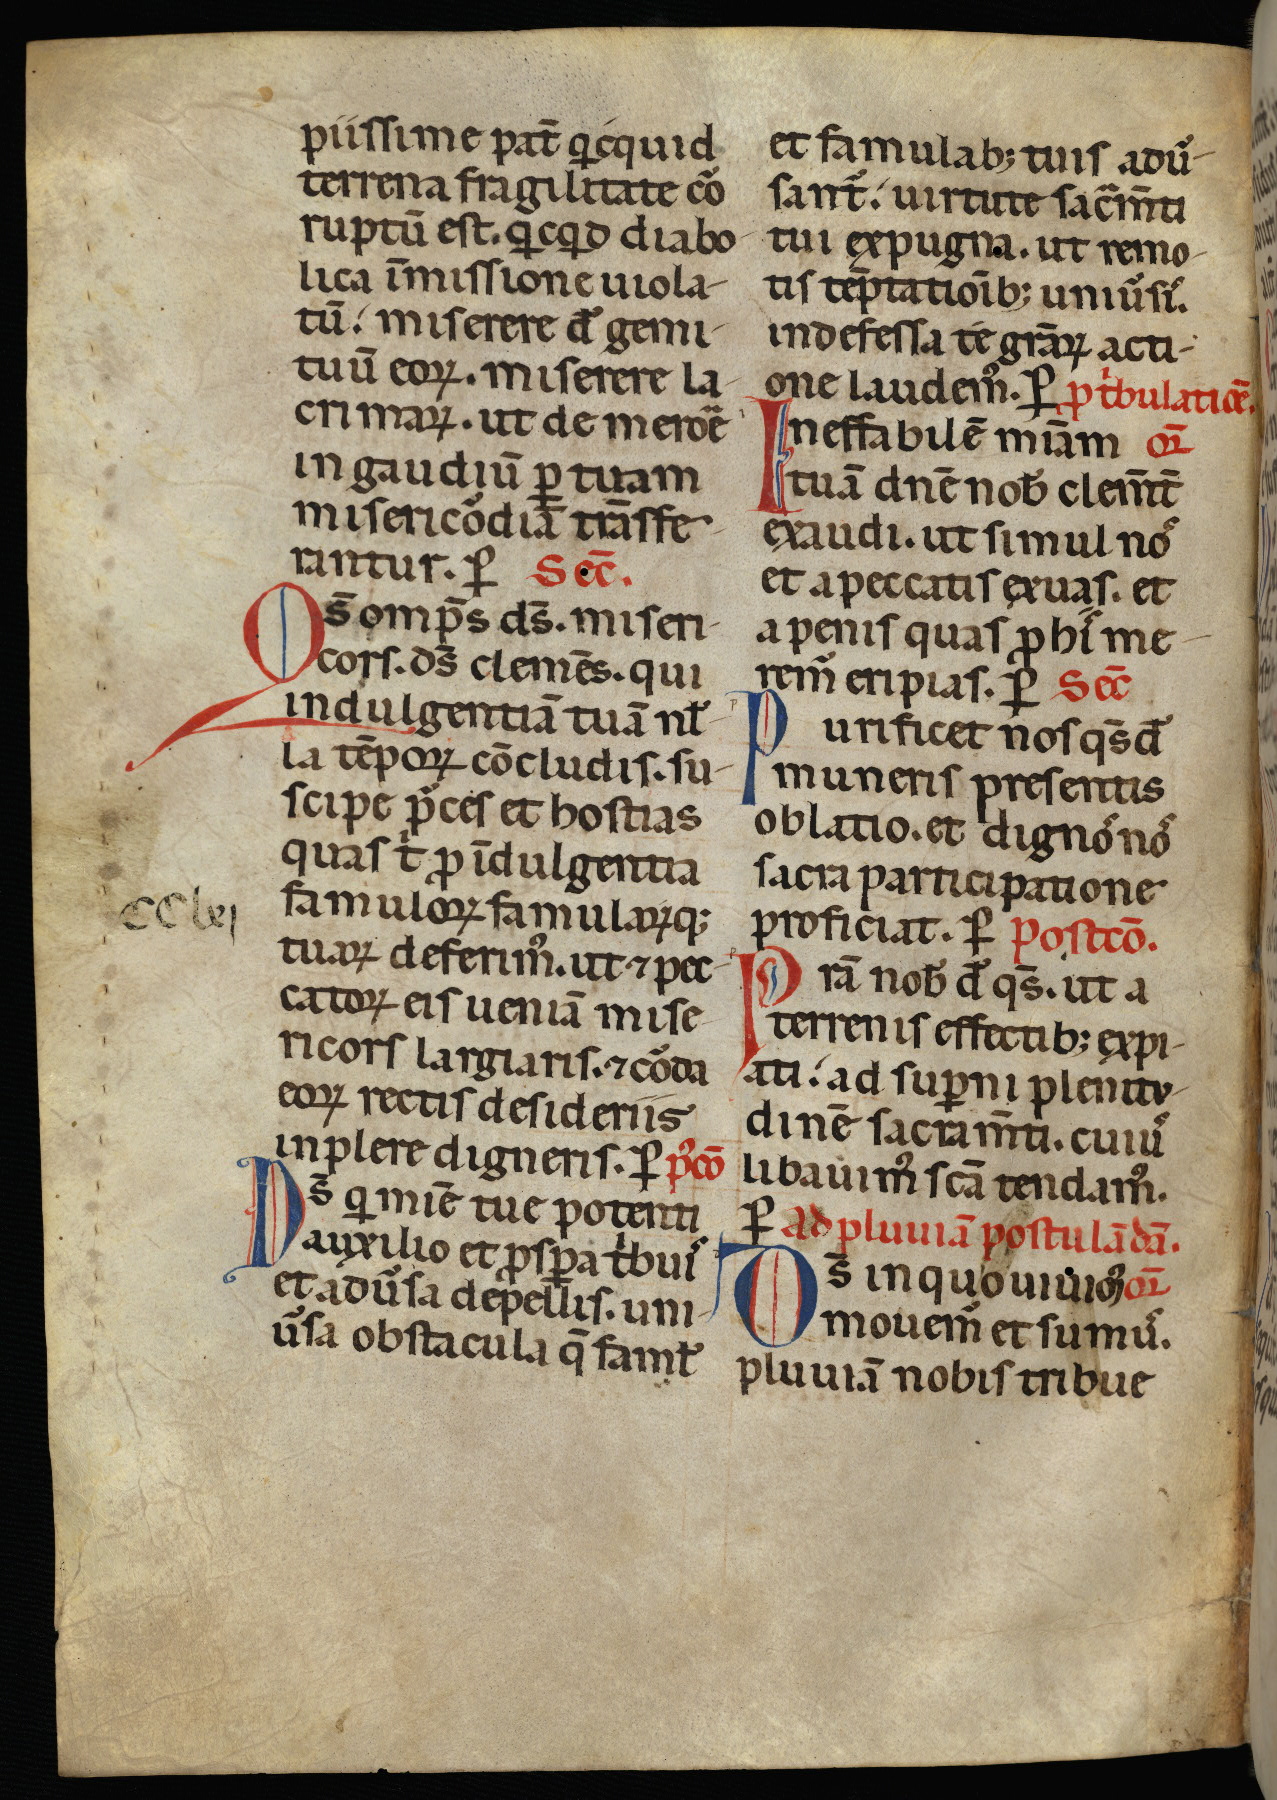 piissime pat̄ qͥcquid
terrena fragilitate co᷒
ruptū est. qͥcqͥd diabo-
lica īmissione uiola-
tū. miserere d̄s gemi-
tuū eoꝝ. miserere la-
crimaꝝ. ut de merore
in gaudiū ꝑ tuam
misericordiā trāsfe-
rantur. ꝑ Sec̄.
O s̄ omp̄s ds̄. miseri-
cors. ds̄ clemēs. qui
indulgentiā tuā nl̄-
la tēpoꝝ cōcludis. su-
scipe p̄ces et hostias
quas tͥ ꝓ īdulgentia
famuloꝝ famulaꝝq;
tuaꝝ deferim᷒. ut ⁊ pec-
catoꝝ eis ueniā mise-
ricors largiaris. ⁊ corda
eoꝝ rectis desideriis
inplere digneris. ꝑ p᷒cō
CClvj
D s̄ qͥ mīe tue potenti
auxilio et ꝓspꝑa tͥbuis
et adūsa depellis. uni-
ūsa obstacula q̄ famł
et famulab; tuis adū-
sant᷑. uirtute sac̄mēti
tui expugna. ut remo-
tis tēptatiōib; uniūsis.
indefessa te grāꝝ acti-
one laudem᷒. ꝑ ꝓ tͥbulatiōe.
I neffabilē miām or̄
tuā dnē nob̄ clemt̄
exaudi. ut simul nos
et a peccatis exuas. et
a penis quas ꝓ his me-
rem᷒ eripias. ꝑ Sec̄
P urificet nos qs̄ d̄s
muneris presentis
oblatio. et dignos nos
sacra participatione
proficiat. ꝑ Postcō.
P rā nob̄ d̄s qs̄. ut a
terrenis effectib; expi-
ati. ad suꝑni plenitu-
dinē sacram̄ti. cuius
libauim᷒ scā tendam᷒.
ꝑ Ad pluuiā postulādā.
D s̄ in quo uiuim᷒ or̄
mouem᷒ et sumus.
pluuiā nobis tribue